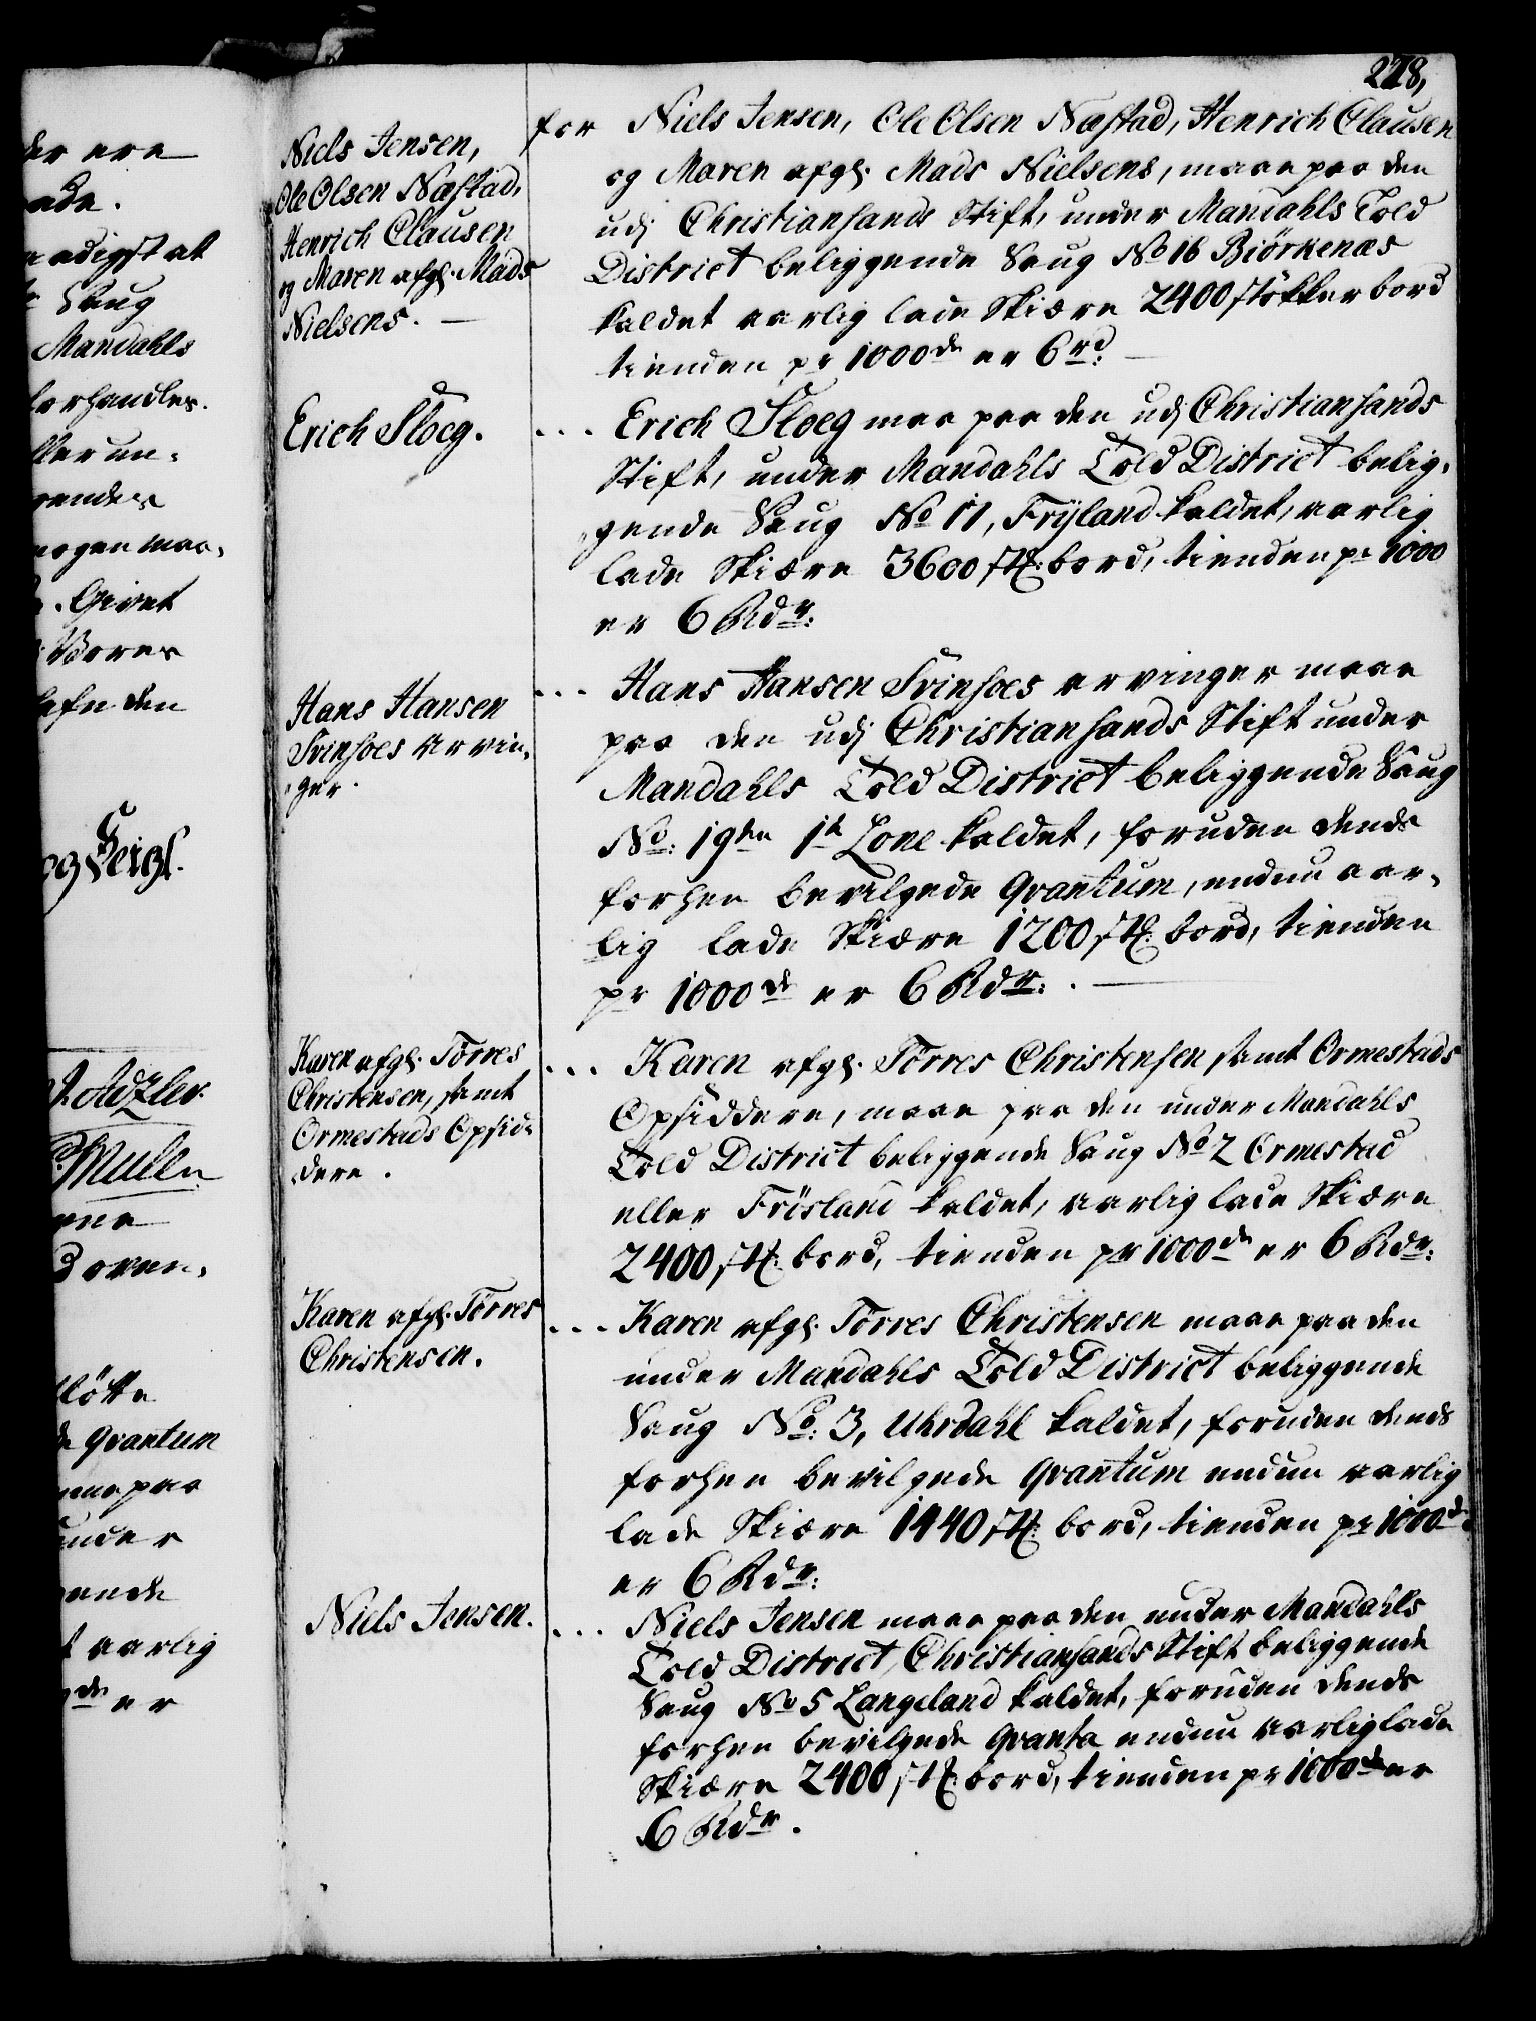 228,
der ere
nadigst at
Saug
Mandahls
forhandles.
eller un-
nogen maa-
Givet
Vores
den
og Seigl.
Quantum
paa
under
aarlig
de er
Niels Jensen,
Ole Olsen Næstad,
Henrich Clausen
og Maren afgl. Mads
Nielsens.
for Niels Jensen, Ole Olsen Næstad, Henrich Clausen
og Maren afgl. Mads Nielsens, maae paa den
udj Christiansands Stift, under Mandahls Told
District beliggende Saug No 16 Biörkenæs
kaldet aarlig lade Skiære 2400 stökker bord
tienden pr 1000de er 6 rd:
Erich Sloeg.
... Erich Sloeg maa paa den udj Christiansands
Stift, under Mandahls Told District belig-
gende Saug No 11, Fryland kaldet, aarlig
lade Skiære 3600 stk: bord, tienden pr 1000
er 6 Rdr:
Hans Hansen
Svinsoes Arvin-
ger.
... Hans Hansen Svinsoes arvinger maae
paa den udj Christiansands Stift under
Mandahls Told District beliggende Saug
No: 19den 1te Lone kaldet, foruden dends
forhen bevilgede Qvantum, endnu aar-
lig lade Skiære 1200 stk: bord, tienden
pr 1000de er 6 Rdr:.
Karen afgl. Törres
Christensen, samt
Ormestads Opsid-
dere.
... Karen afgl. Törres Christensen samt Ormestads
Opsiddere, maae paa den under Mandahls
Told District beliggende Saug No 2 Ormestad
eller Frösland kaldet, aarlig lade Skiære
2400 stk: bord, tienden pr 1000de er 6 Rdr:
Karen afgl. Törres
Christensen.
... Karen afgl. Törres Christensen maae paa den
under Mandahls Told District beliggende
Saug No: 3, Uhrdahl kaldet, foruden dends
forhen bevilgede Qvantum endnu aarlig
lade Skiære 1440 stk: bord, tienden pr 1000de
er 6 Rdr:
Niels Jensen.
... Niels Jensen maae paa den under Mandahls
Told District, Christiansands Stift beliggende
Saug No 5 Langeland kaldet, foruden dends
forhen bevilgede Qvanta endnu aarlig lade
Skiære 2400 stk: bord, tienden pr 1000de er
6 Rdr.